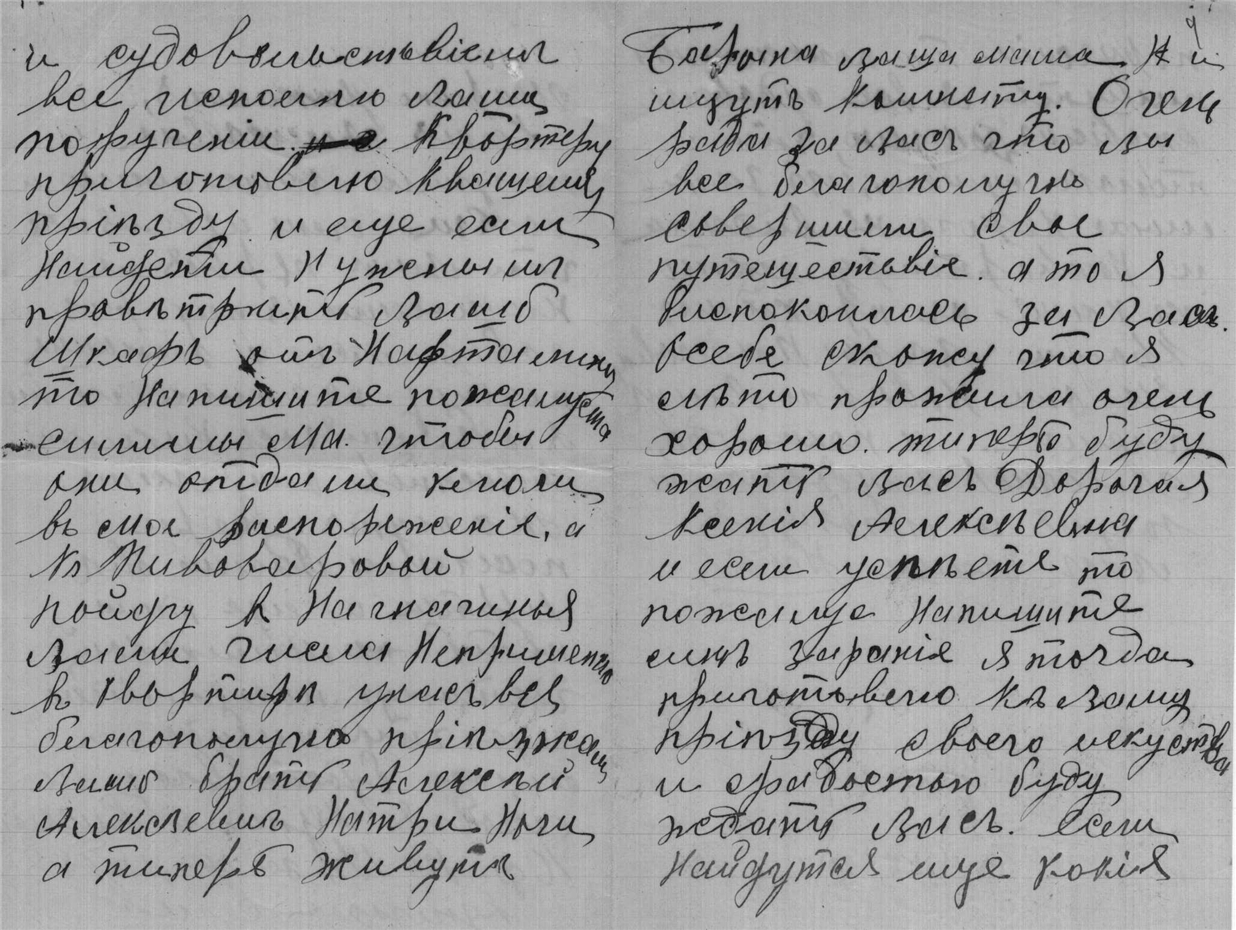 и судовольствіемъ
все исполню ваши
порученіи квортеру
приготовлю квашему
пріѣзду и еще если
Найдети Нужнымъ
провѣтрить вашъ
Шкафъ отъ Нафталину
то Напишите пожалуста
чтобы
они отдали ключи
въ мое распореженіе, а
къ Пивоваровой
пойду в Назначиныя
вами числа Непришенно
в квортирѣ унасъ все
благополучно пріѣзжалъ
вашъ братъ Алексѣй
Алексѣевичъ Натри Ночи
а типерь живутъ
ваша мама Н и
ищутъ комноту. Очень
рада за васъ что вы
все благополучно
совершили свое
путешествіе. а то я
биспокоилась за васъ.
осебе скожу что я
лѣто прожила очень
хорошо. типерь буду
ждать васъ Дорогая
Ксенія Алексѣевна
и если успѣете то
пожалуста Напишите
мнѣ зараніе я тогда
приготовлю къ вашему
пріѣзду своего искуства
и срадостью буду
ждать васъ. если
Найдутся еще кокія